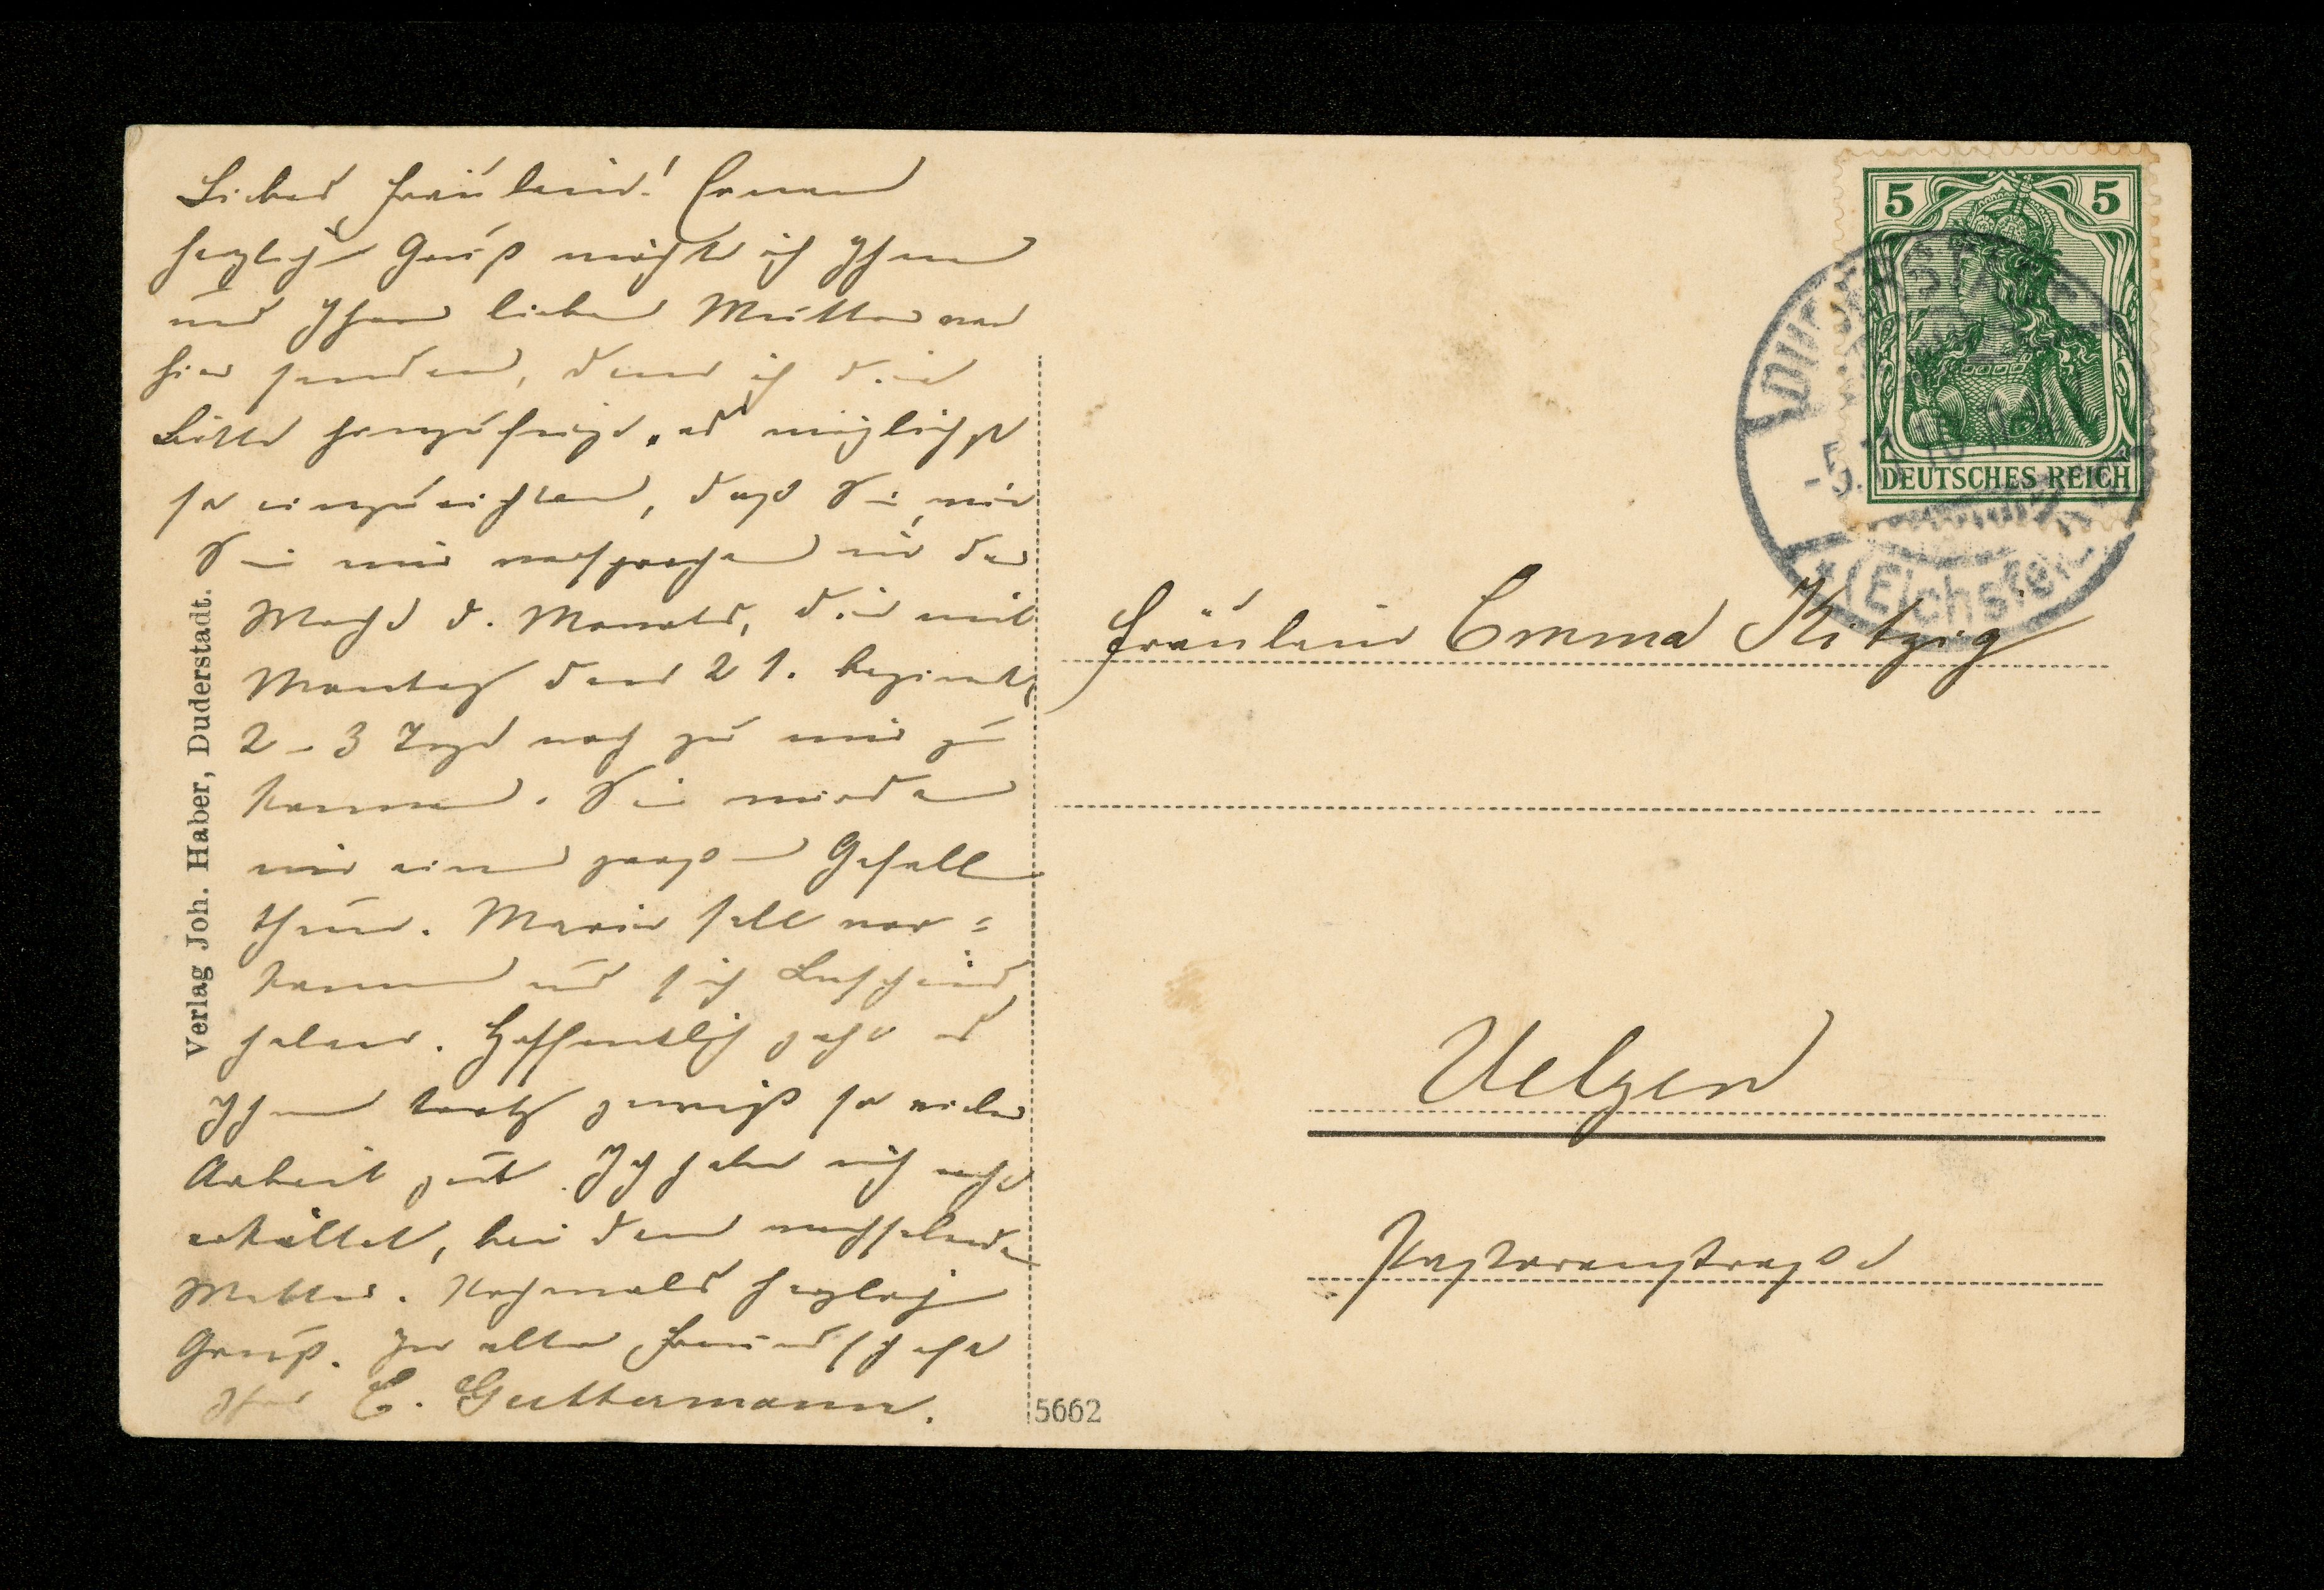 Liebes Fräulein! Einen
herzlich Gruß möchte ich Ihnen
und Ihrer lieben Mutter von
hier senden, dem ich die
Bitte hinzufüge, es möglichst
so einzurichten, daß Sie, wie
Sie mir versprochen in der
Woche d. Monats, die mit
Montag den 21. beginnt,
2-3 Tage nach zu mir zu
kommen. Sie würden
mir einen großen Gefall
thun. Marie soll vor=
kommen und sich Bescheid
holen. Hoffentlich geht es
Ihnen trotz gewiß so vieler
Arbeit gut. Ich habe mich recht
erkältet, bei dem wechselnden
Wetter. Nochmals herzlich
Gruß. In alter Freundschaft
Ihre E. Guttermann.
Verlag Joh. Haber, Duderstadt.
5662
5 5
DEUTSCHES REICH
DUDERSTADT
-5.
* (Eichsfeld)
Fräulein Emma Kitzig
Uelzen
Pastorenstraße